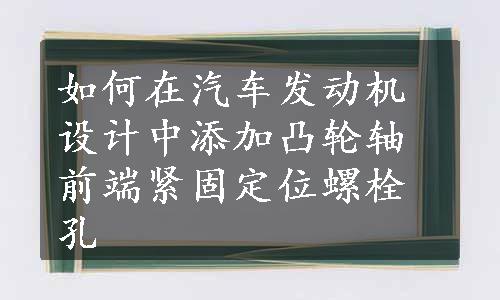 如何在汽车发动机
设计中添加凸轮轴
前端紧固定位螺栓
孔